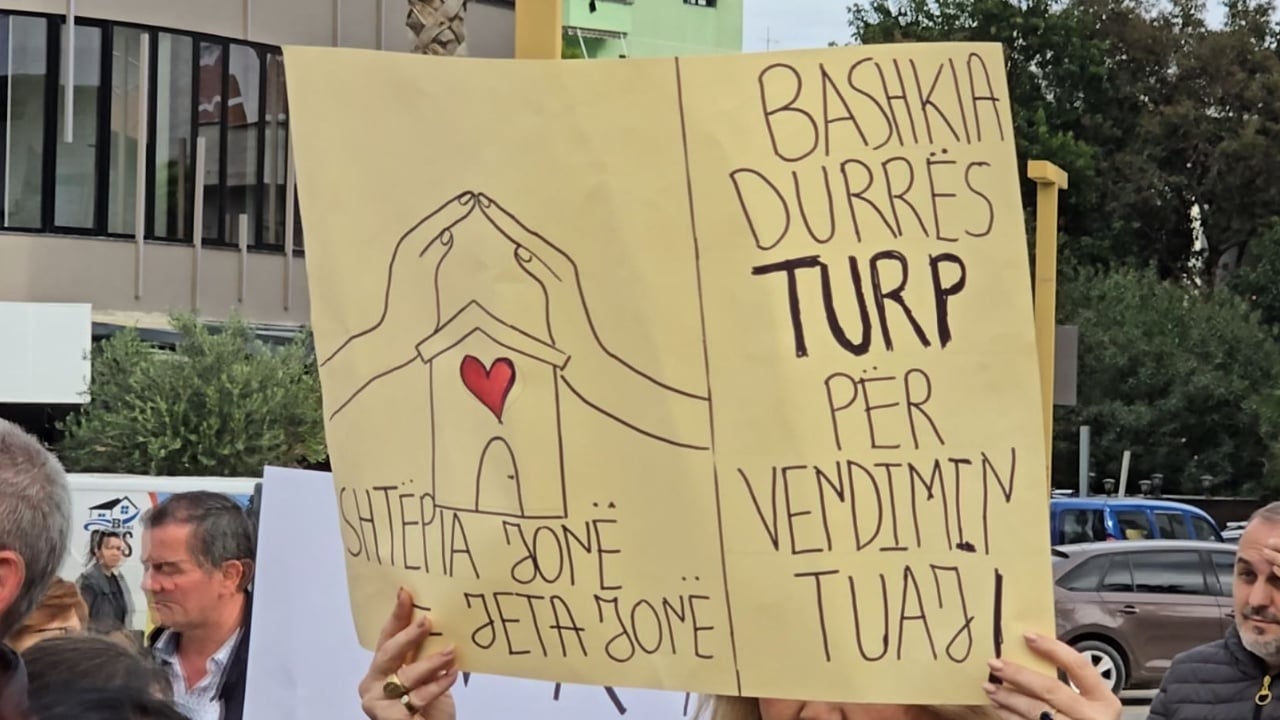 SHTËPIA JONË
= JETA JONË
BASHKIA
DURRËS
TURP
PËR
VENDIMIN
TUAJ!